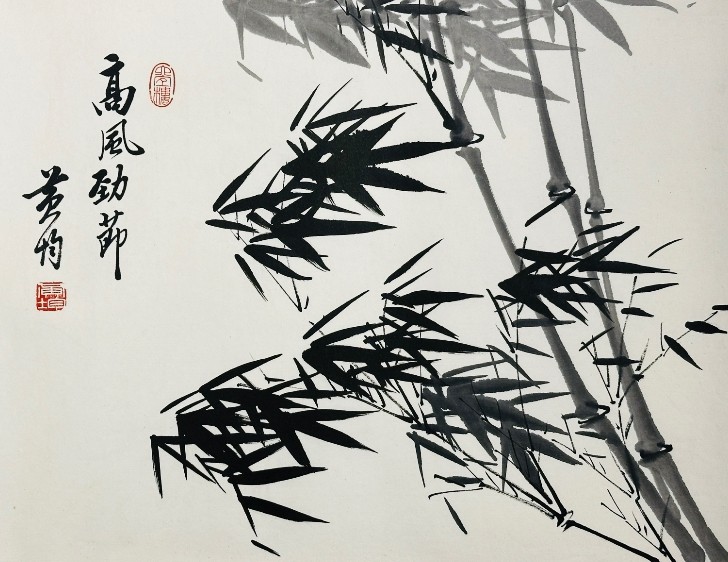 高風勁節
黄均